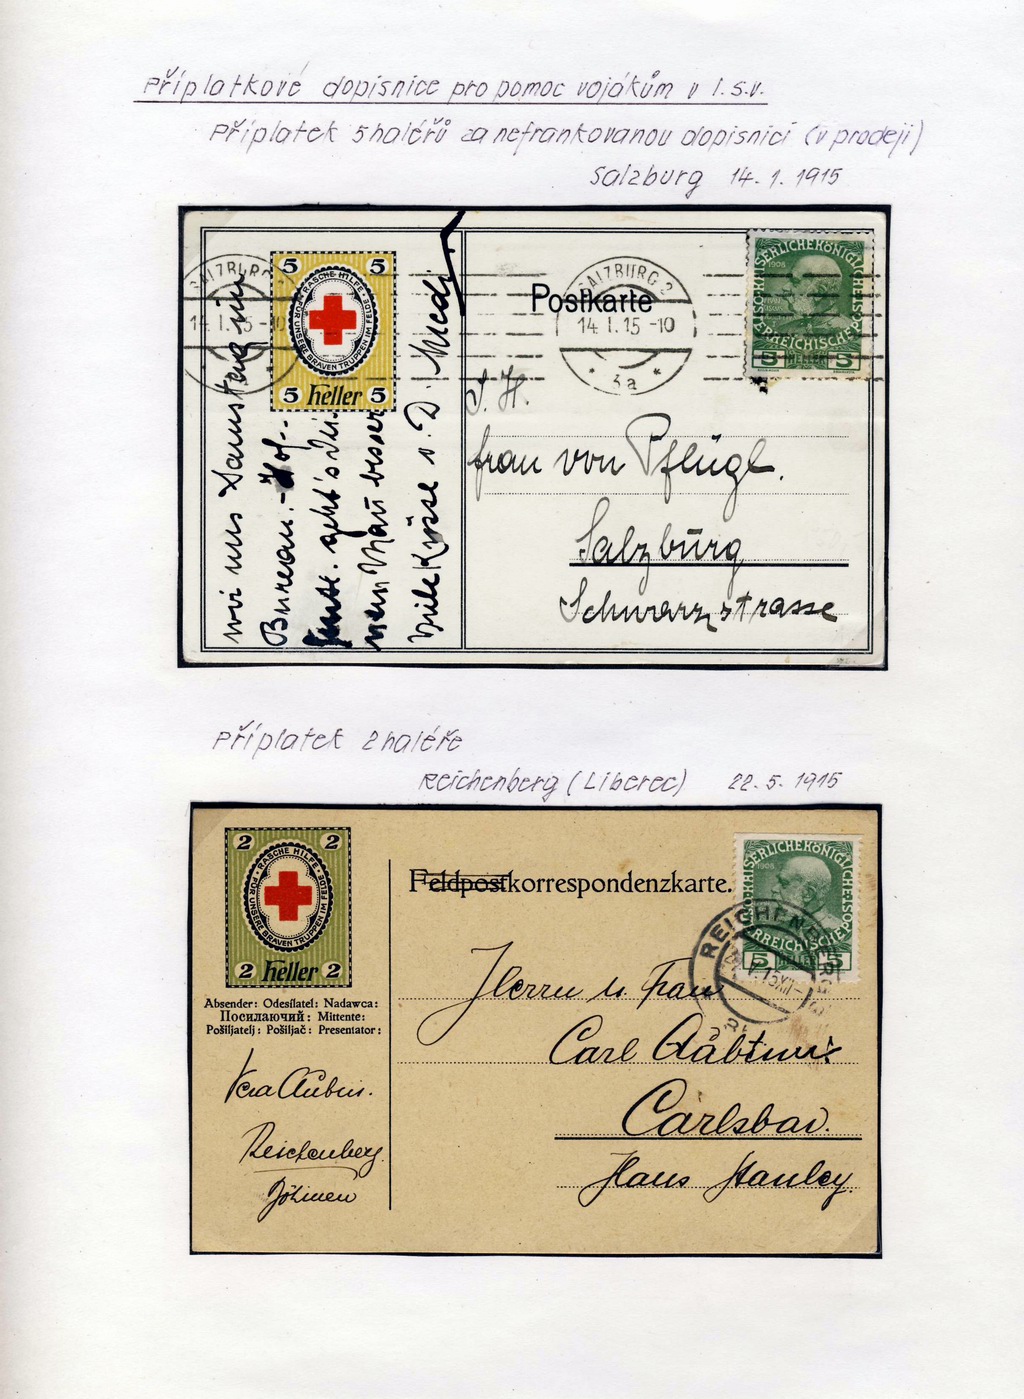 Příplatkové dopisnice pro pomoc vojákům v I. s.v.
Příplatek 5 haléřů za nefrankovanou dopisnici (v prodeji)
Salzburg 14. 1. 1915
SALZBURG
14 I. 15 -10
5 5
RASCHE HILFE
FÜR UNSERE BRAVEN TRUPPEN IM FELDE
5 Heller 5
wir uns
Bureau.-Hof..
geht's
besser
Viele Küsse v. D.
Postkarte
SALZBURG 2
14 I. 15 -10
* 3a *
1908
KAISERLICHEKÖNIGLICHE
ÖSTERREICHISCHE POST
5 HELLER 5
I. H.
Frau von Pflügl.
Salzburg
Schwarzstrasse
Příplatek 2 haléře
Reichenberg (Liberec) 22. 5. 1915
2 2
RASCHE HILFE
FÜR UNSERE BRAVEN TRUPPEN IM FELDE
2 Heller 2
Absender: Odesílatel: Nadawca:
Посилаючий: Mittente:
Pošiljatelj: Pošiljač: Presentator:
Reichenberg
Böhmen
Feldpostkorrespondenzkarte.
1908
KAISERLICHEKÖNIGLICHE
ÖSTERREICHISCHE POST
5 HELLER 5
REICHENBERG
V. 15 XII-
Herrn u. Frau
Carl
Carlsbad.
Haus Stanley.